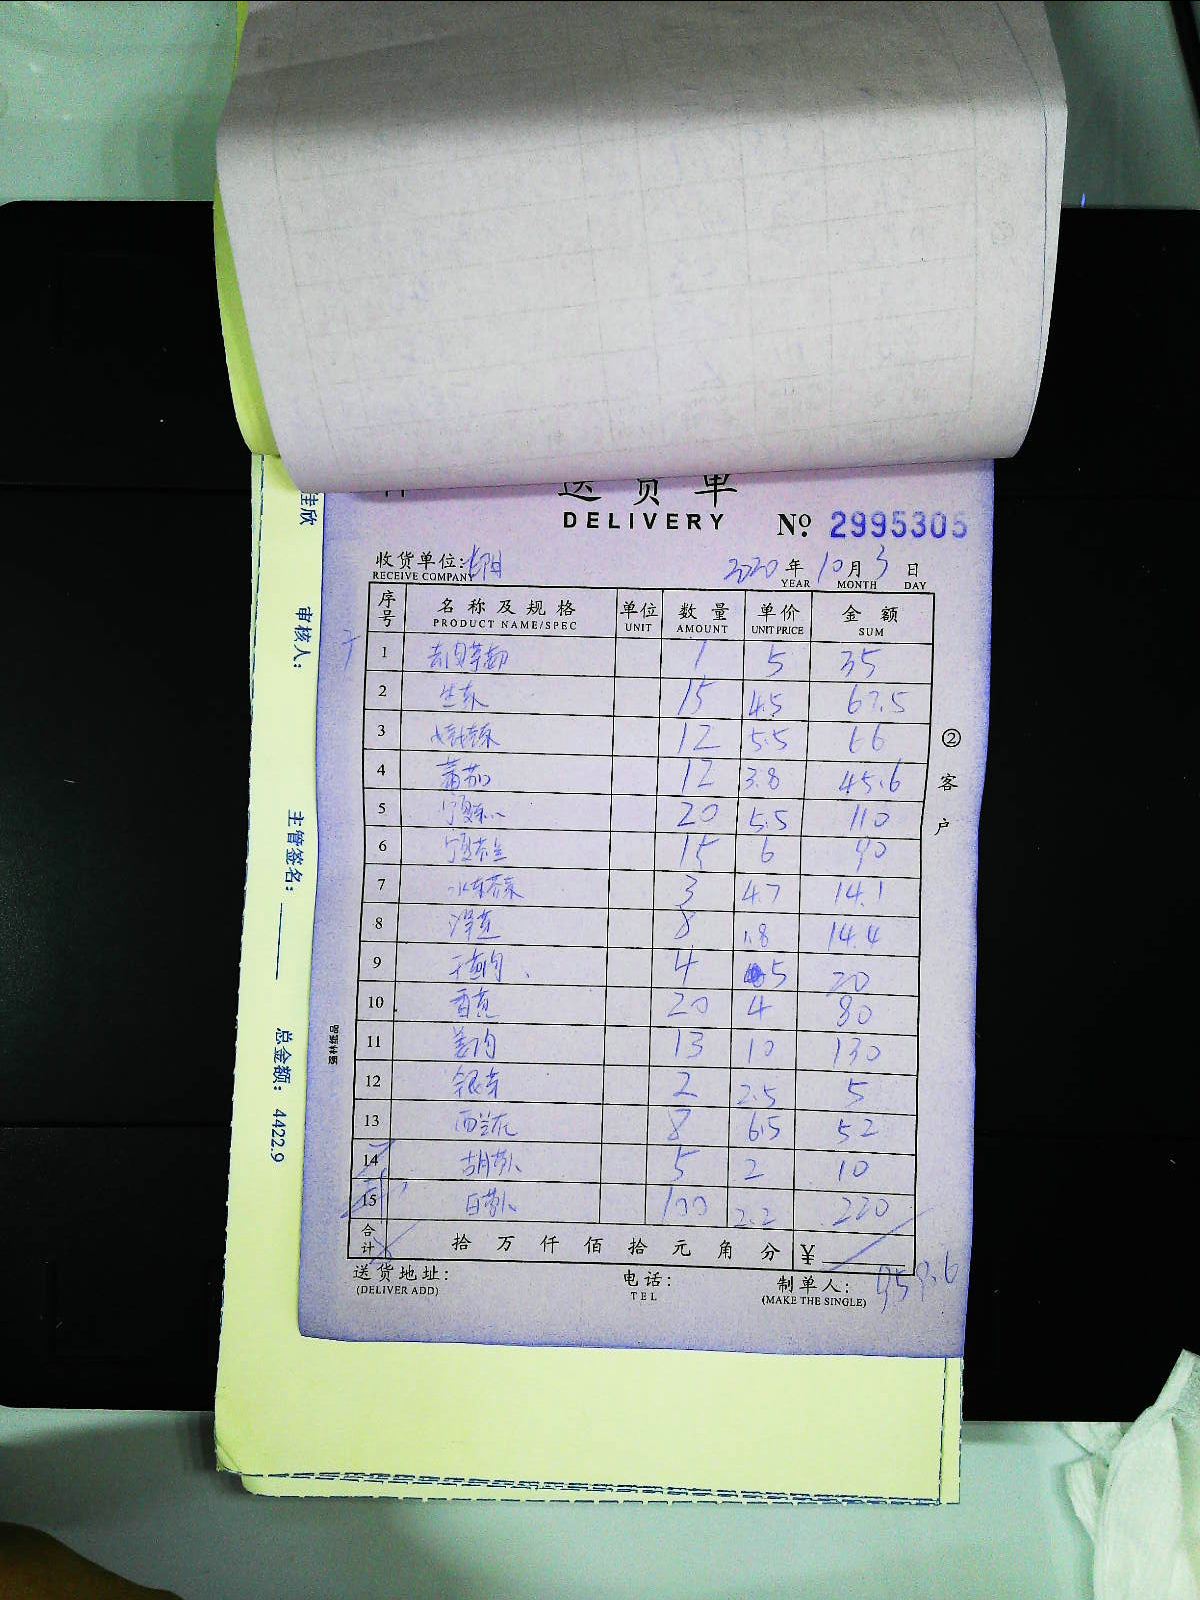 送货单
DELIVERY
No. 2995305
收货单位:
RECEIVE COMPANY
2020 年 10 月 3 日
YEAR MONTH DAY
序号 名称及规格 单位 数量 单价 金额
PRODUCT NAME/SPEC UNIT AMOUNT UNIT PRICE SUM
1 1 5 35
2 生菜 15 4.5 67.5
3 12 5.5 66
4 蕃茄 12 3.8 45.6
5 20 5.5 110
6 15 6 90
7 3 4.7 14.1
8 8 1.8 14.4
9 干葱肉 4 5 20
10 香芹 20 4 80
11 姜肉 13 10 130
12 银芽 2 2.5 5
13 西兰花 8 6.5 52
14 胡萝卜 5 2 10
15 白萝卜 100 2.2 220
合计 拾 万 仟 佰 拾 元 角 分 ¥
959.6
送货地址: 电话: 制单人:
(DELIVER ADD) TEL (MAKE THE SINGLE)
②客户
强林纸品
佳欣 审核人: 主管签名: 总金额: 4422.9